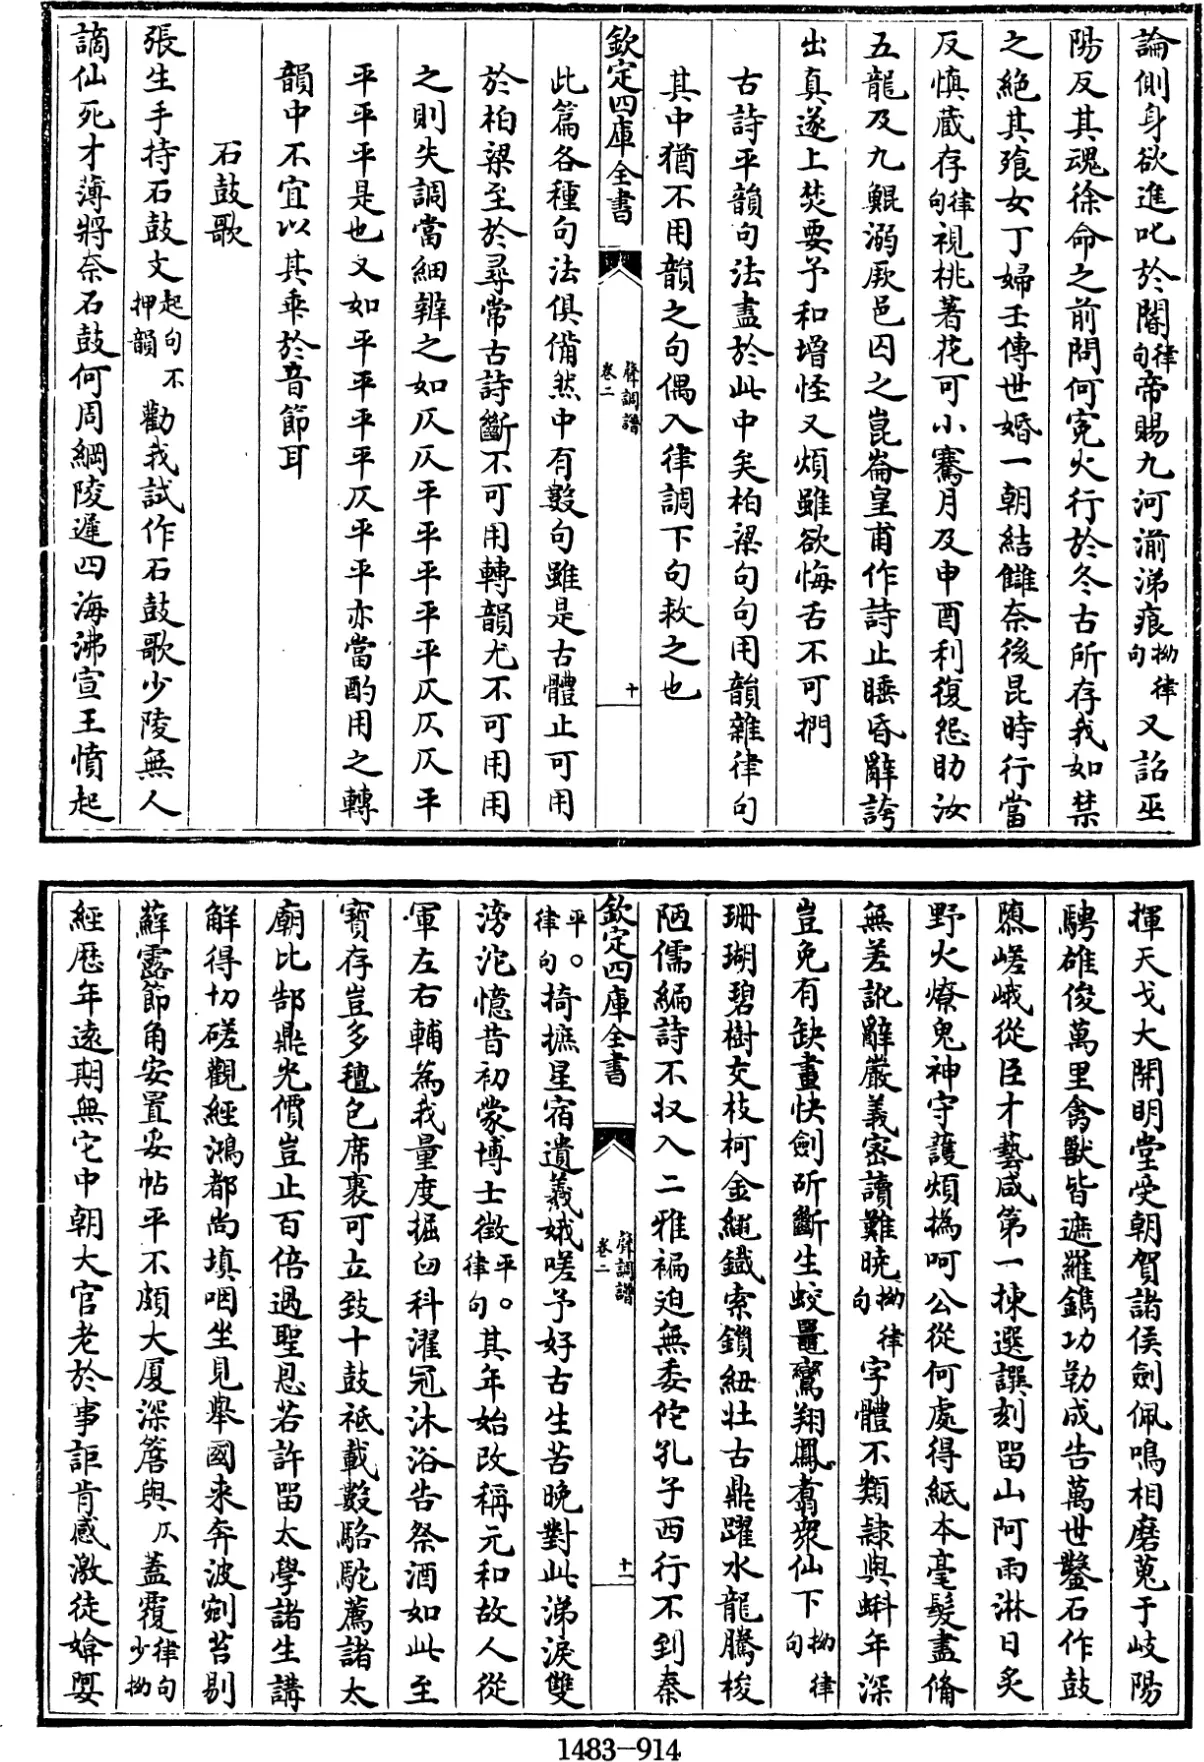 論側身欲進叱於閽律句帝賜九河湔涕痕拗律句又詔巫
陽反其魂徐命之前問何寃火行於冬古所存我如禁
之絶其飱女丁婦壬傳世婚一朝結讎奈後昆時行當
反慎蔵存律句視桃著花可小騫月及申酉利復怨助汝
五龍及九鯤溺厥邑囚之崑崙皇甫作詩止睡昏辭誇
出真遂上焚要予和增怪又煩雖欲悔舌不可捫
古詩平韻句法盡於此中矣柏梁句句用韻雜律句
其中猶不用韻之句偶入律調下句救之也
欽定四庫全書
聲調譜
卷二
十
此篇各種句法俱備然中有數句雖是古體止可用
於柏梁至於尋常古詩斷不可用轉韻尤不可用用
之則失調當細辨之如仄仄平平平平平仄仄仄平
平平平是也又如平平平平仄平平亦當酌用之轉
韻中不宜以其乖於音節耳
石鼓歌
張生手持石鼓文起句不押韻勸我試作石鼓歌少陵無人
謫仙死才薄將奈石鼓何周綱陵遲四海沸宣王憤起
揮天戈大開明堂受朝賀諸侯劍佩鳴相磨蒐于岐陽
騁雄俊萬里禽獸皆遮羅鐫功勒成告萬世鑿石作鼓
隳嵯峨從臣才藝咸第一揀選譔刻留山阿雨淋日炙
野火燎鬼神守護煩撝呵公從何處得紙本毫髮盡備
無差訛辭嚴義密讀難曉拗律句字體不類隷與蝌年深
豈免有缺畫快劍斫斷生蛟鼉鸞翔鳳翥衆仙下拗律句
珊瑚碧樹交枝柯金繩鐵索鎖紐壯古鼎躍水龍騰梭
陋儒編詩不收入二雅褊迫無委佗孔子西行不到秦
欽定四庫全書
聲調譜
卷二
十一
平。律句掎摭星宿遺羲娥嗟予好古生苦晚對此涕淚雙
滂沱憶昔初蒙博士徴平。律句其年始改稱元和故人從
軍左右輔為我量度掘臼科濯冠沐浴告祭酒如此至
寶存豈多氊包席裹可立致十鼓祗載數駱駝薦諸太
廟比郜鼎光價豈止百倍過聖恩若許留太學諸生講
解得切磋觀經鴻都尚填咽坐見舉國来奔波剜苔剔
蘚露節角安置妥帖平不頗大厦深簷與仄蓋覆律句少拗
經歴年逺期無它中朝大官老於事詎肯感激徒媕娿
1483-914